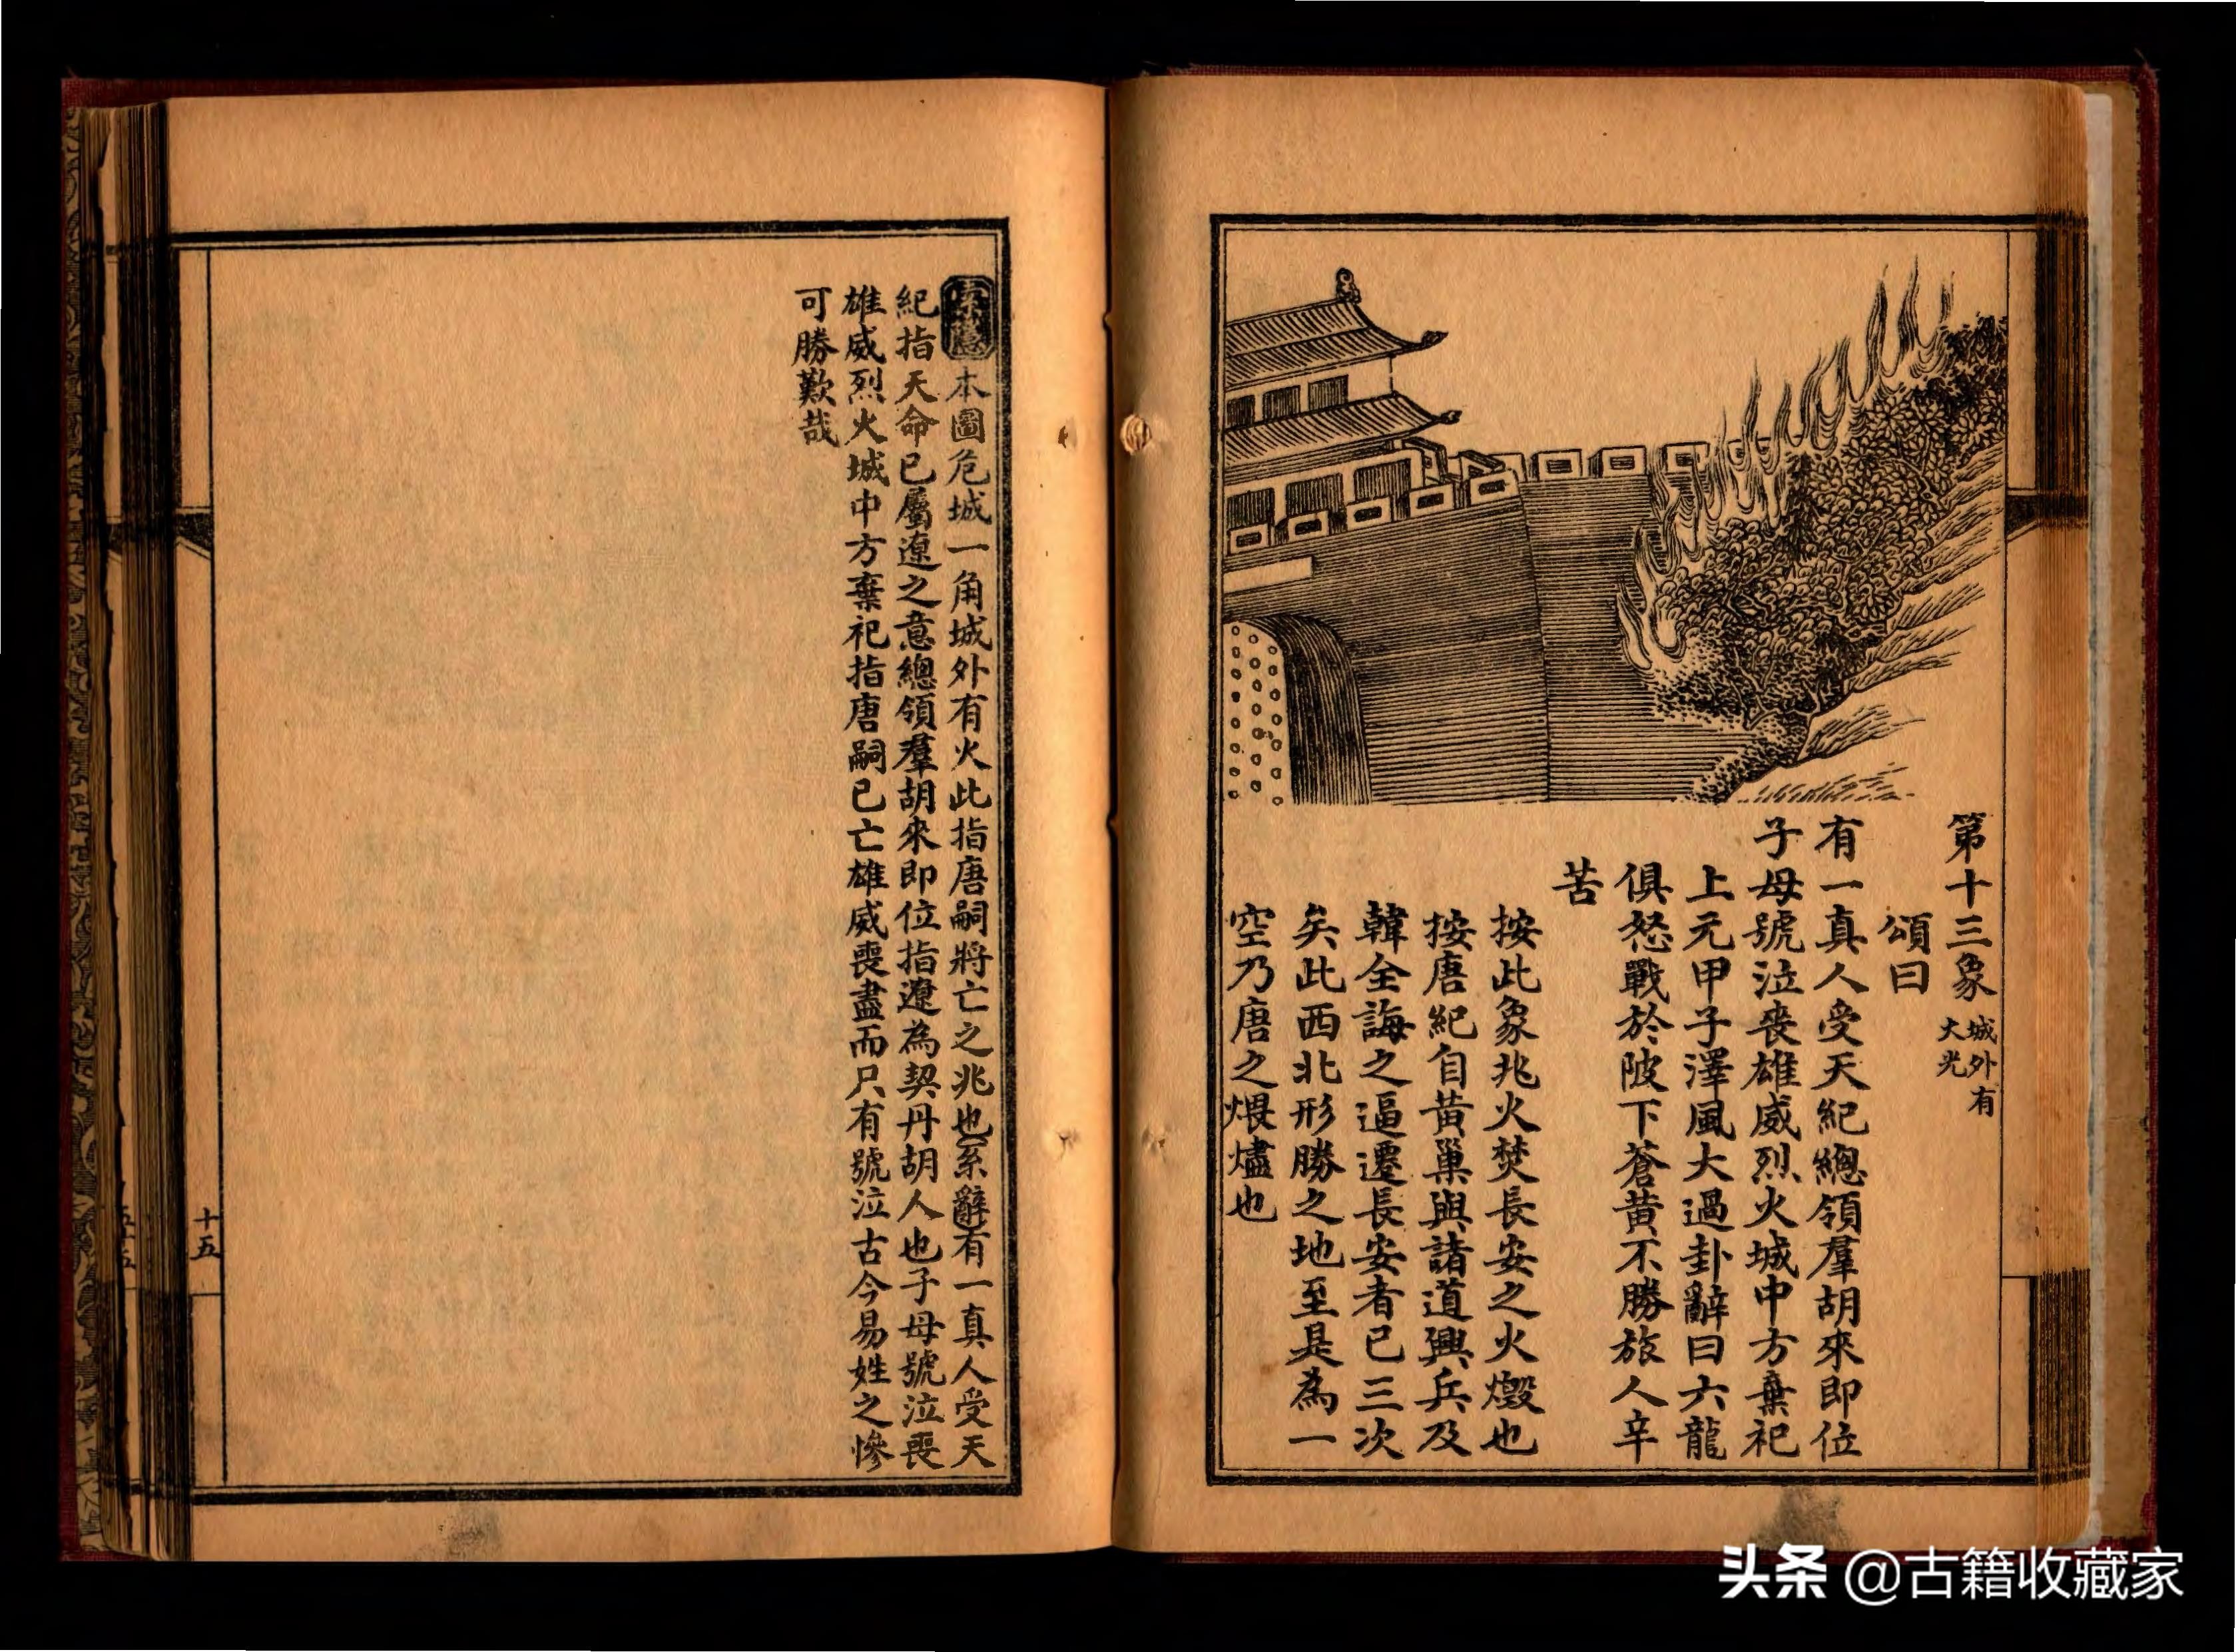 第十三象 城外有
大光
頌曰
有一真人受天紀總領羣胡來即位
子母號泣喪雄威烈火城中方棄祀
上元甲子澤風大過卦辭曰六龍
俱怒戰於陂下蒼黃不勝旅人辛
苦
按此象兆火焚長安之火燬也
按唐紀自黃巢與諸道興兵及
韓全誨之逼遷長安者已三次
矣此西北形勝之地至是為一
空乃唐之煨燼也
索隱本圖危城一角城外有火此指唐嗣將亡之兆也系辭有一真人受天
紀指天命已屬遼之意總領羣胡來即位指遼為契丹胡人也子母號泣喪
雄威烈火城中方棄祀指唐嗣已亡雄威喪盡而只有號泣古今易姓之慘
可勝歎哉
十五
头条 @古籍收藏家